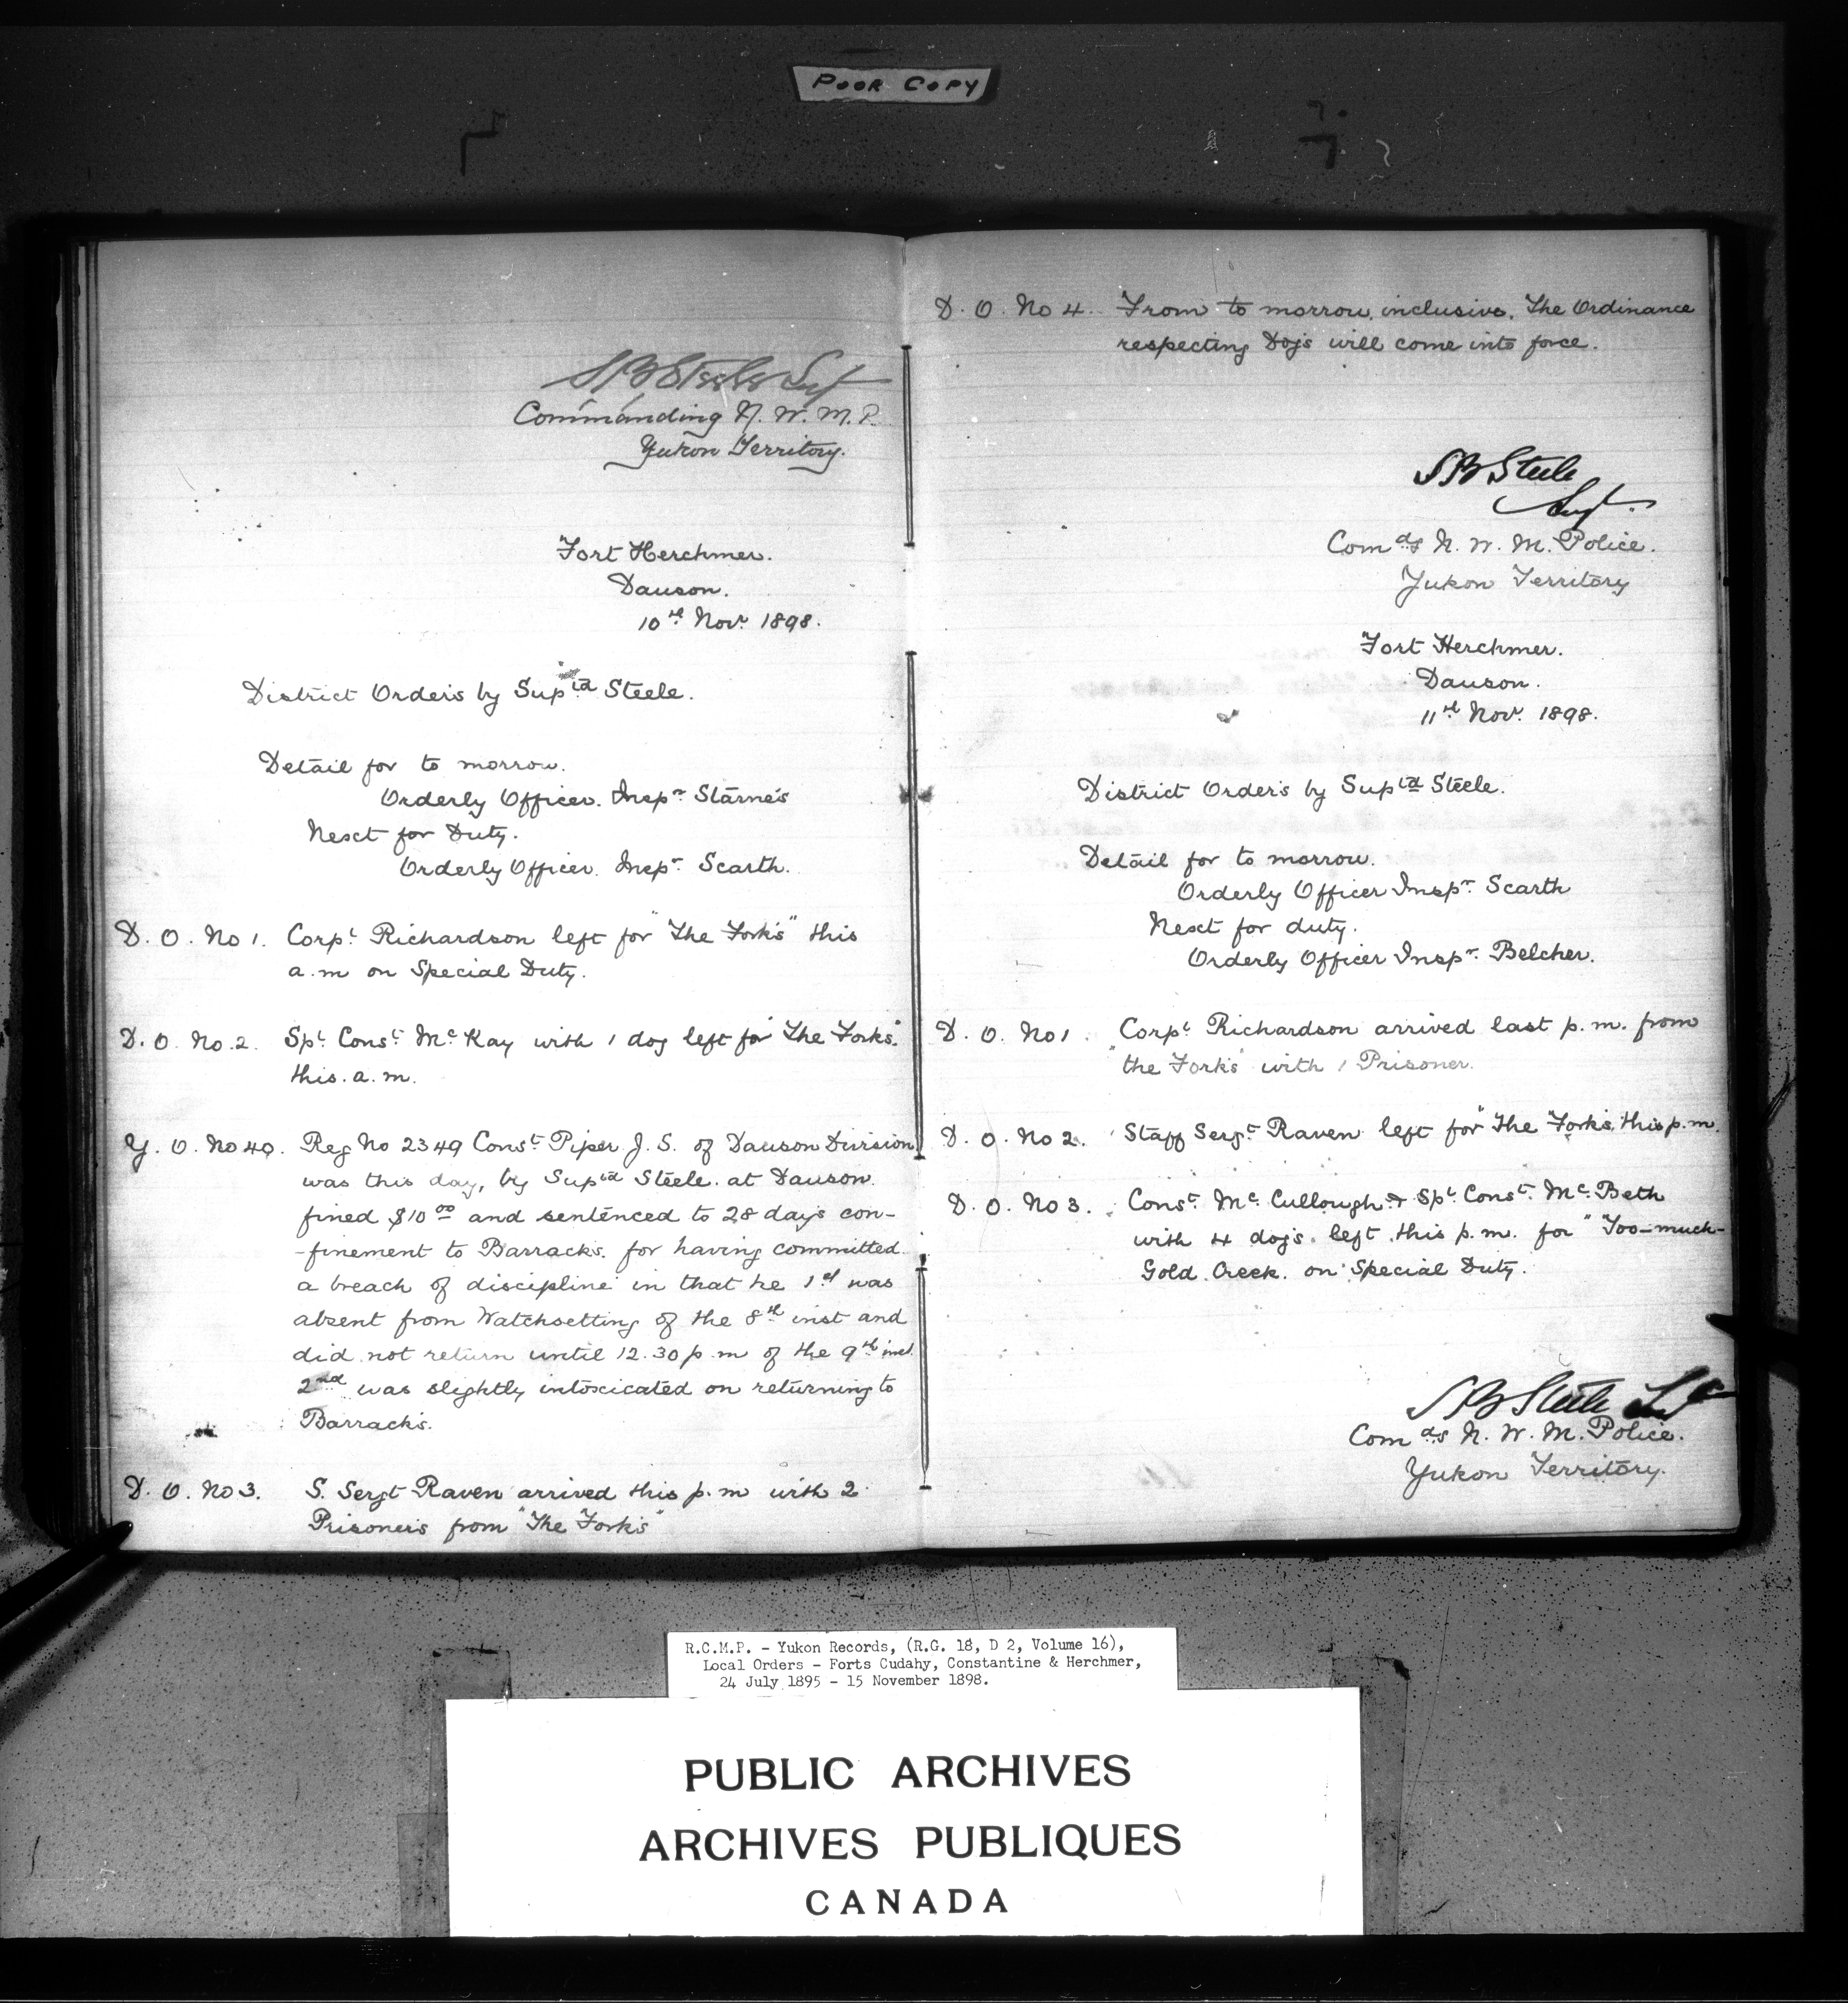 POOR COPY
S B Steele Supt
Commanding N. W. M. P.
Yukon Territory.
Fort Herchmer.
Dawson.
10th Novr 1898.
District Orders by Suptd Steele.
Detail for to morrow.
Orderly Officer. Inspr Starnes
Next for Duty.
Orderly Officer. Inspr Scarth.
D. O. No 1. Corpl Richardson left for "The Forks" this
a.m on Special Duty.
D. O. No. 2. Spl Const McKay with 1 dog left for "The Forks"
this. a. m.
G. O. No 40. Reg No 2349 Const Piper J. S. of Dawson Division
was this day, by Suptd Steele. at Dawson.
fined $10 00 and sentenced to 28 days con-
-finement to Barracks. for having committed
a breach of discipline in that he 1st was
absent from Watchsetting of the 8th inst and
did not return until 12.30 p.m of the 9th inst.
2nd was slightly intoxicated on returning to
Barracks.
D. O. No 3. S. Sergt Raven arrived this p.m with 2
Prisoners from "The Forks"
D. O. No 4. From to morrow, inclusive, The Ordinance
respecting Dogs will come into force.
S B Steele
Supt.
Comdg N. W. M. Police.
Yukon Territory
Fort Herchmer.
Dawson.
11th Novr 1898.
District Orders by Suptd Steele.
Detail for to morrow.
Orderly Officer Inspr Scarth
Next for duty.
Orderly Officer Inspr Belcher.
D. O. No 1. Corpl Richardson arrived last p. m. from
"the Forks" with 1 Prisoner.
D. O. No 2. Staff Sergt Raven left for "The Forks" this p.m.
D. O. No 3. Const McCullough & Spl Const McBeth
with 4 dogs. left this p. m. for "Too-much-
Gold Creek. on Special Duty.
S B Steele Supt
Comdg N. W. M. Police.
Yukon Territory.
R.C.M.P. - Yukon Records, (R.G. 18, D 2, Volume 16),
Local Orders - Forts Cudahy, Constantine & Herchmer,
24 July 1895 - 15 November 1898.
PUBLIC ARCHIVES
ARCHIVES PUBLIQUES
CANADA